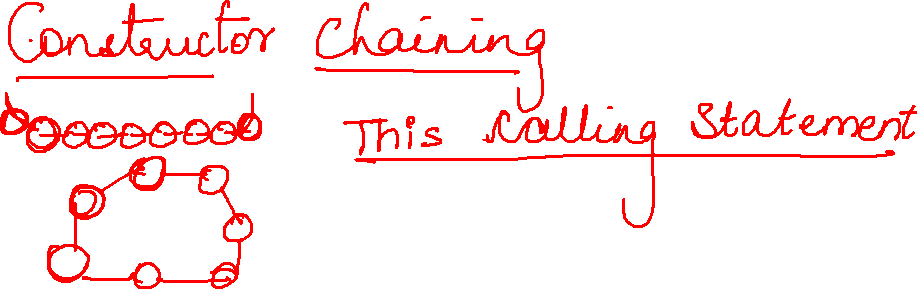 Constructor Chaining
This calling Statement